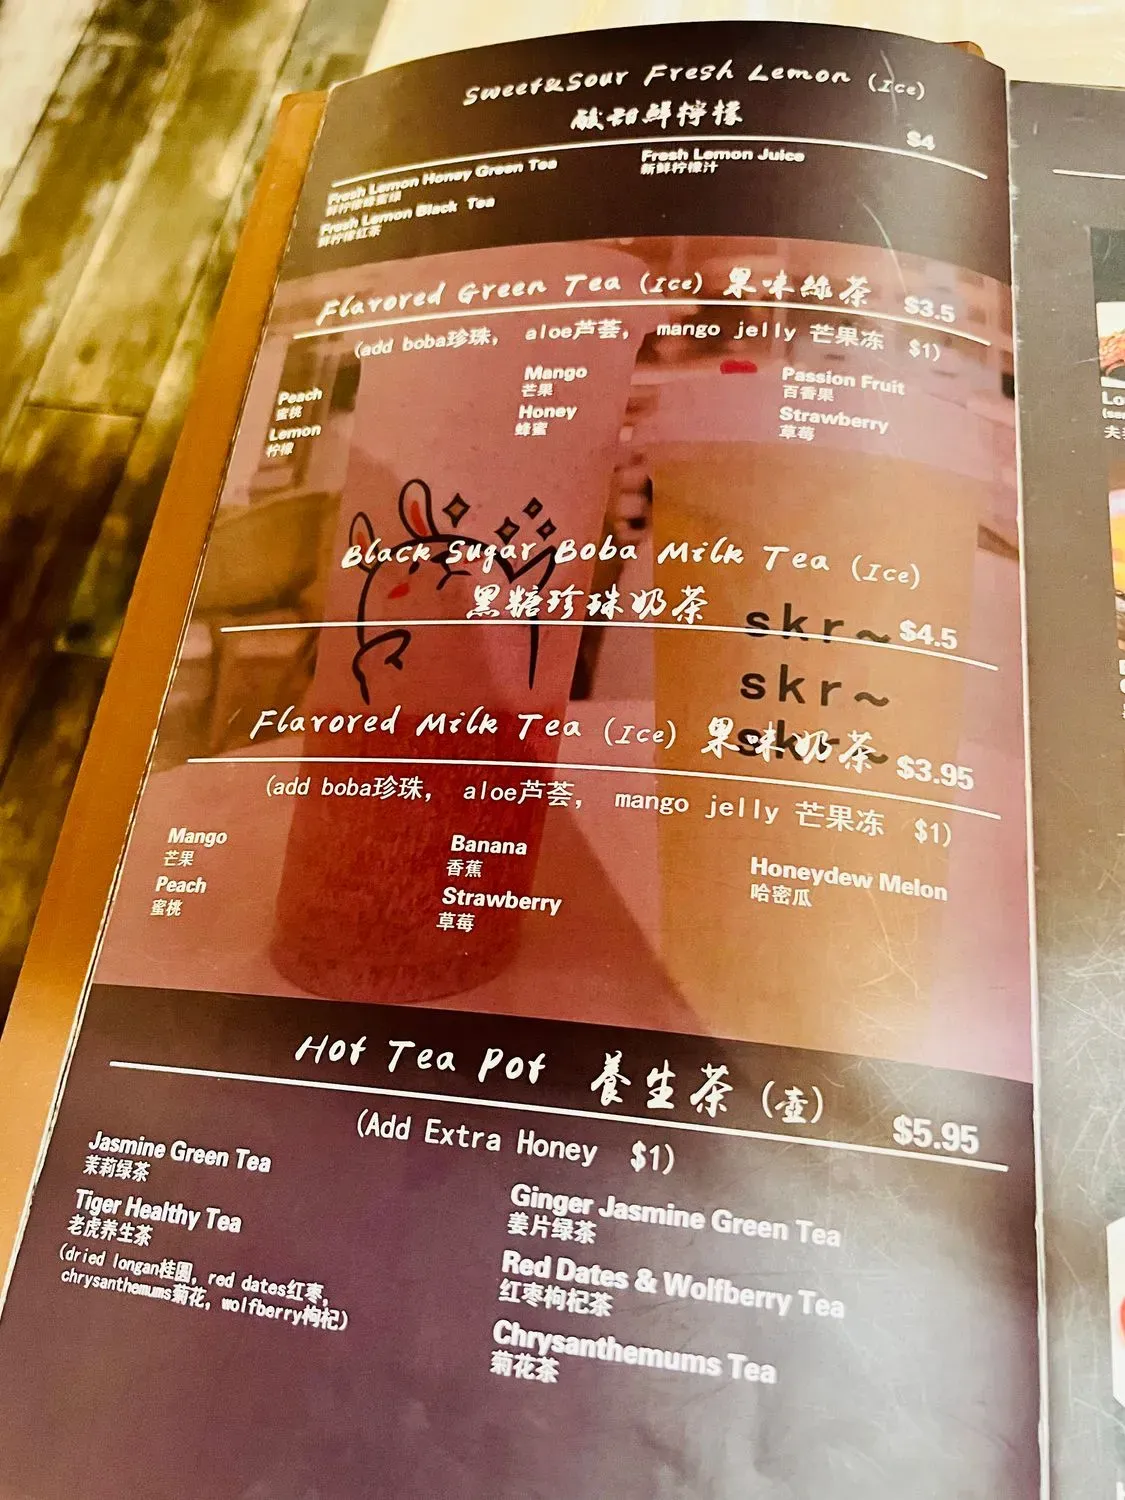 Sweet&Sour Fresh Lemon (Ice)
酸甜鮮檸檬
$4
Fresh Lemon Honey Green Tea
鲜柠檬蜂蜜绿
Fresh Lemon Juice
新鲜柠檬汁
Fresh Lemon Black Tea
鲜柠檬红茶
Flavored Green Tea (Ice) 果味綠茶 $3.5
(add boba珍珠, aloe芦荟, mango jelly 芒果冻 $1)
Peach
蜜桃
Mango
芒果
Passion Fruit
百香果
Lemon
柠檬
Honey
蜂蜜
Strawberry
草莓
Black Sugar Boba Milk Tea (Ice)
黑糖珍珠奶茶 $4.5
skr~
skr~
skr~
Flavored Milk Tea (Ice) 果味奶茶 $3.95
(add boba珍珠, aloe芦荟, mango jelly 芒果冻 $1)
Mango
芒果
Banana
香蕉
Honeydew Melon
哈密瓜
Peach
蜜桃
Strawberry
草莓
Hot Tea Pot 養生茶 (壺) $5.95
(Add Extra Honey $1)
Jasmine Green Tea
茉莉绿茶
Tiger Healthy Tea
老虎养生茶
(dried longan桂圆, red dates红枣,
chrysanthemums菊花, wolfberry枸杞)
Ginger Jasmine Green Tea
姜片绿茶
Red Dates & Wolfberry Tea
红枣枸杞茶
Chrysanthemums Tea
菊花茶